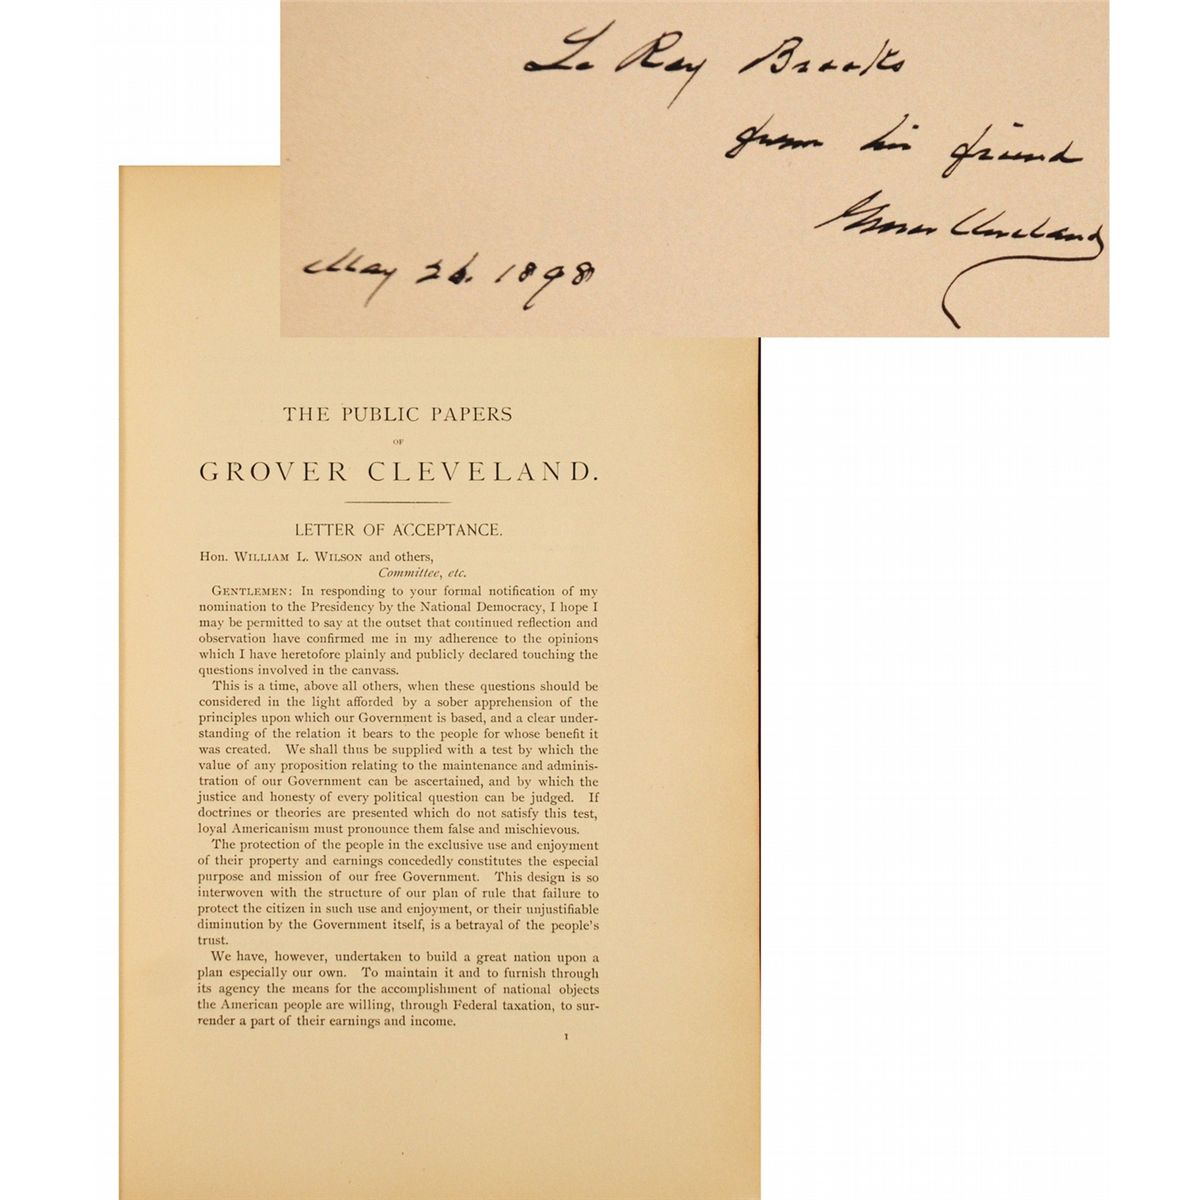 Le Roy Brooks
from his friend
Grover Cleveland
May 26. 1898
THE PUBLIC PAPERS
OF
GROVER CLEVELAND.
LETTER OF ACCEPTANCE.
Hon. WILLIAM L. WILSON and others,
Committee, etc.
GENTLEMEN: In responding to your formal notification of my
nomination to the Presidency by the National Democracy, I hope I
may be permitted to say at the outset that continued reflection and
observation have confirmed me in my adherence to the opinions
which I have heretofore plainly and publicly declared touching the
questions involved in the canvass.
This is a time, above all others, when these questions should be
considered in the light afforded by a sober apprehension of the
principles upon which our Government is based, and a clear under-
standing of the relation it bears to the people for whose benefit it
was created. We shall thus be supplied with a test by which the
value of any proposition relating to the maintenance and adminis-
tration of our Government can be ascertained, and by which the
justice and honesty of every political question can be judged. If
doctrines or theories are presented which do not satisfy this test,
loyal Americanism must pronounce them false and mischievous.
The protection of the people in the exclusive use and enjoyment
of their property and earnings concededly constitutes the especial
purpose and mission of our free Government. This design is so
interwoven with the structure of our plan of rule that failure to
protect the citizen in such use and enjoyment, or their unjustifiable
diminution by the Government itself, is a betrayal of the people's
trust.
We have, however, undertaken to build a great nation upon a
plan especially our own. To maintain it and to furnish through
its agency the means for the accomplishment of national objects
the American people are willing, through Federal taxation, to sur-
render a part of their earnings and income.
1